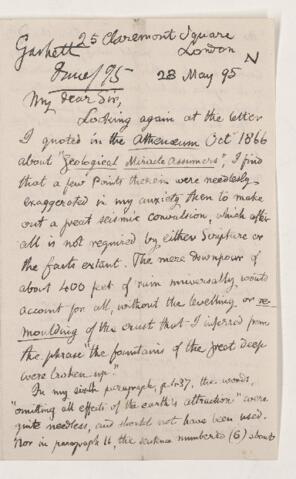 25 Claremont Square
London N
Gaskell
June/95
28 May 95
My dear Sir,
Looking again at the letter
I quoted in the Athenæum Oct 1866
about "Geological Miracle Assumers", I find
that a few points therein were needlessly
exaggerated in my anxiety then to make
out a great seismic convulsion, which after
all is not required by either Scripture or
the facts extant. The mere downpour of
about 400 feet of rain universally would
account for all, without the levelling or re-
moulding of the crust that I inferred from
the phrase "the fountains of the great deep
were broken up."
In my sixth paragraph, p. 437, the words,
"omitting all effects of the earth's attraction" were
quite needless, and should not have been used.
Nor in paragraph 11, the sentence numbered (6) about